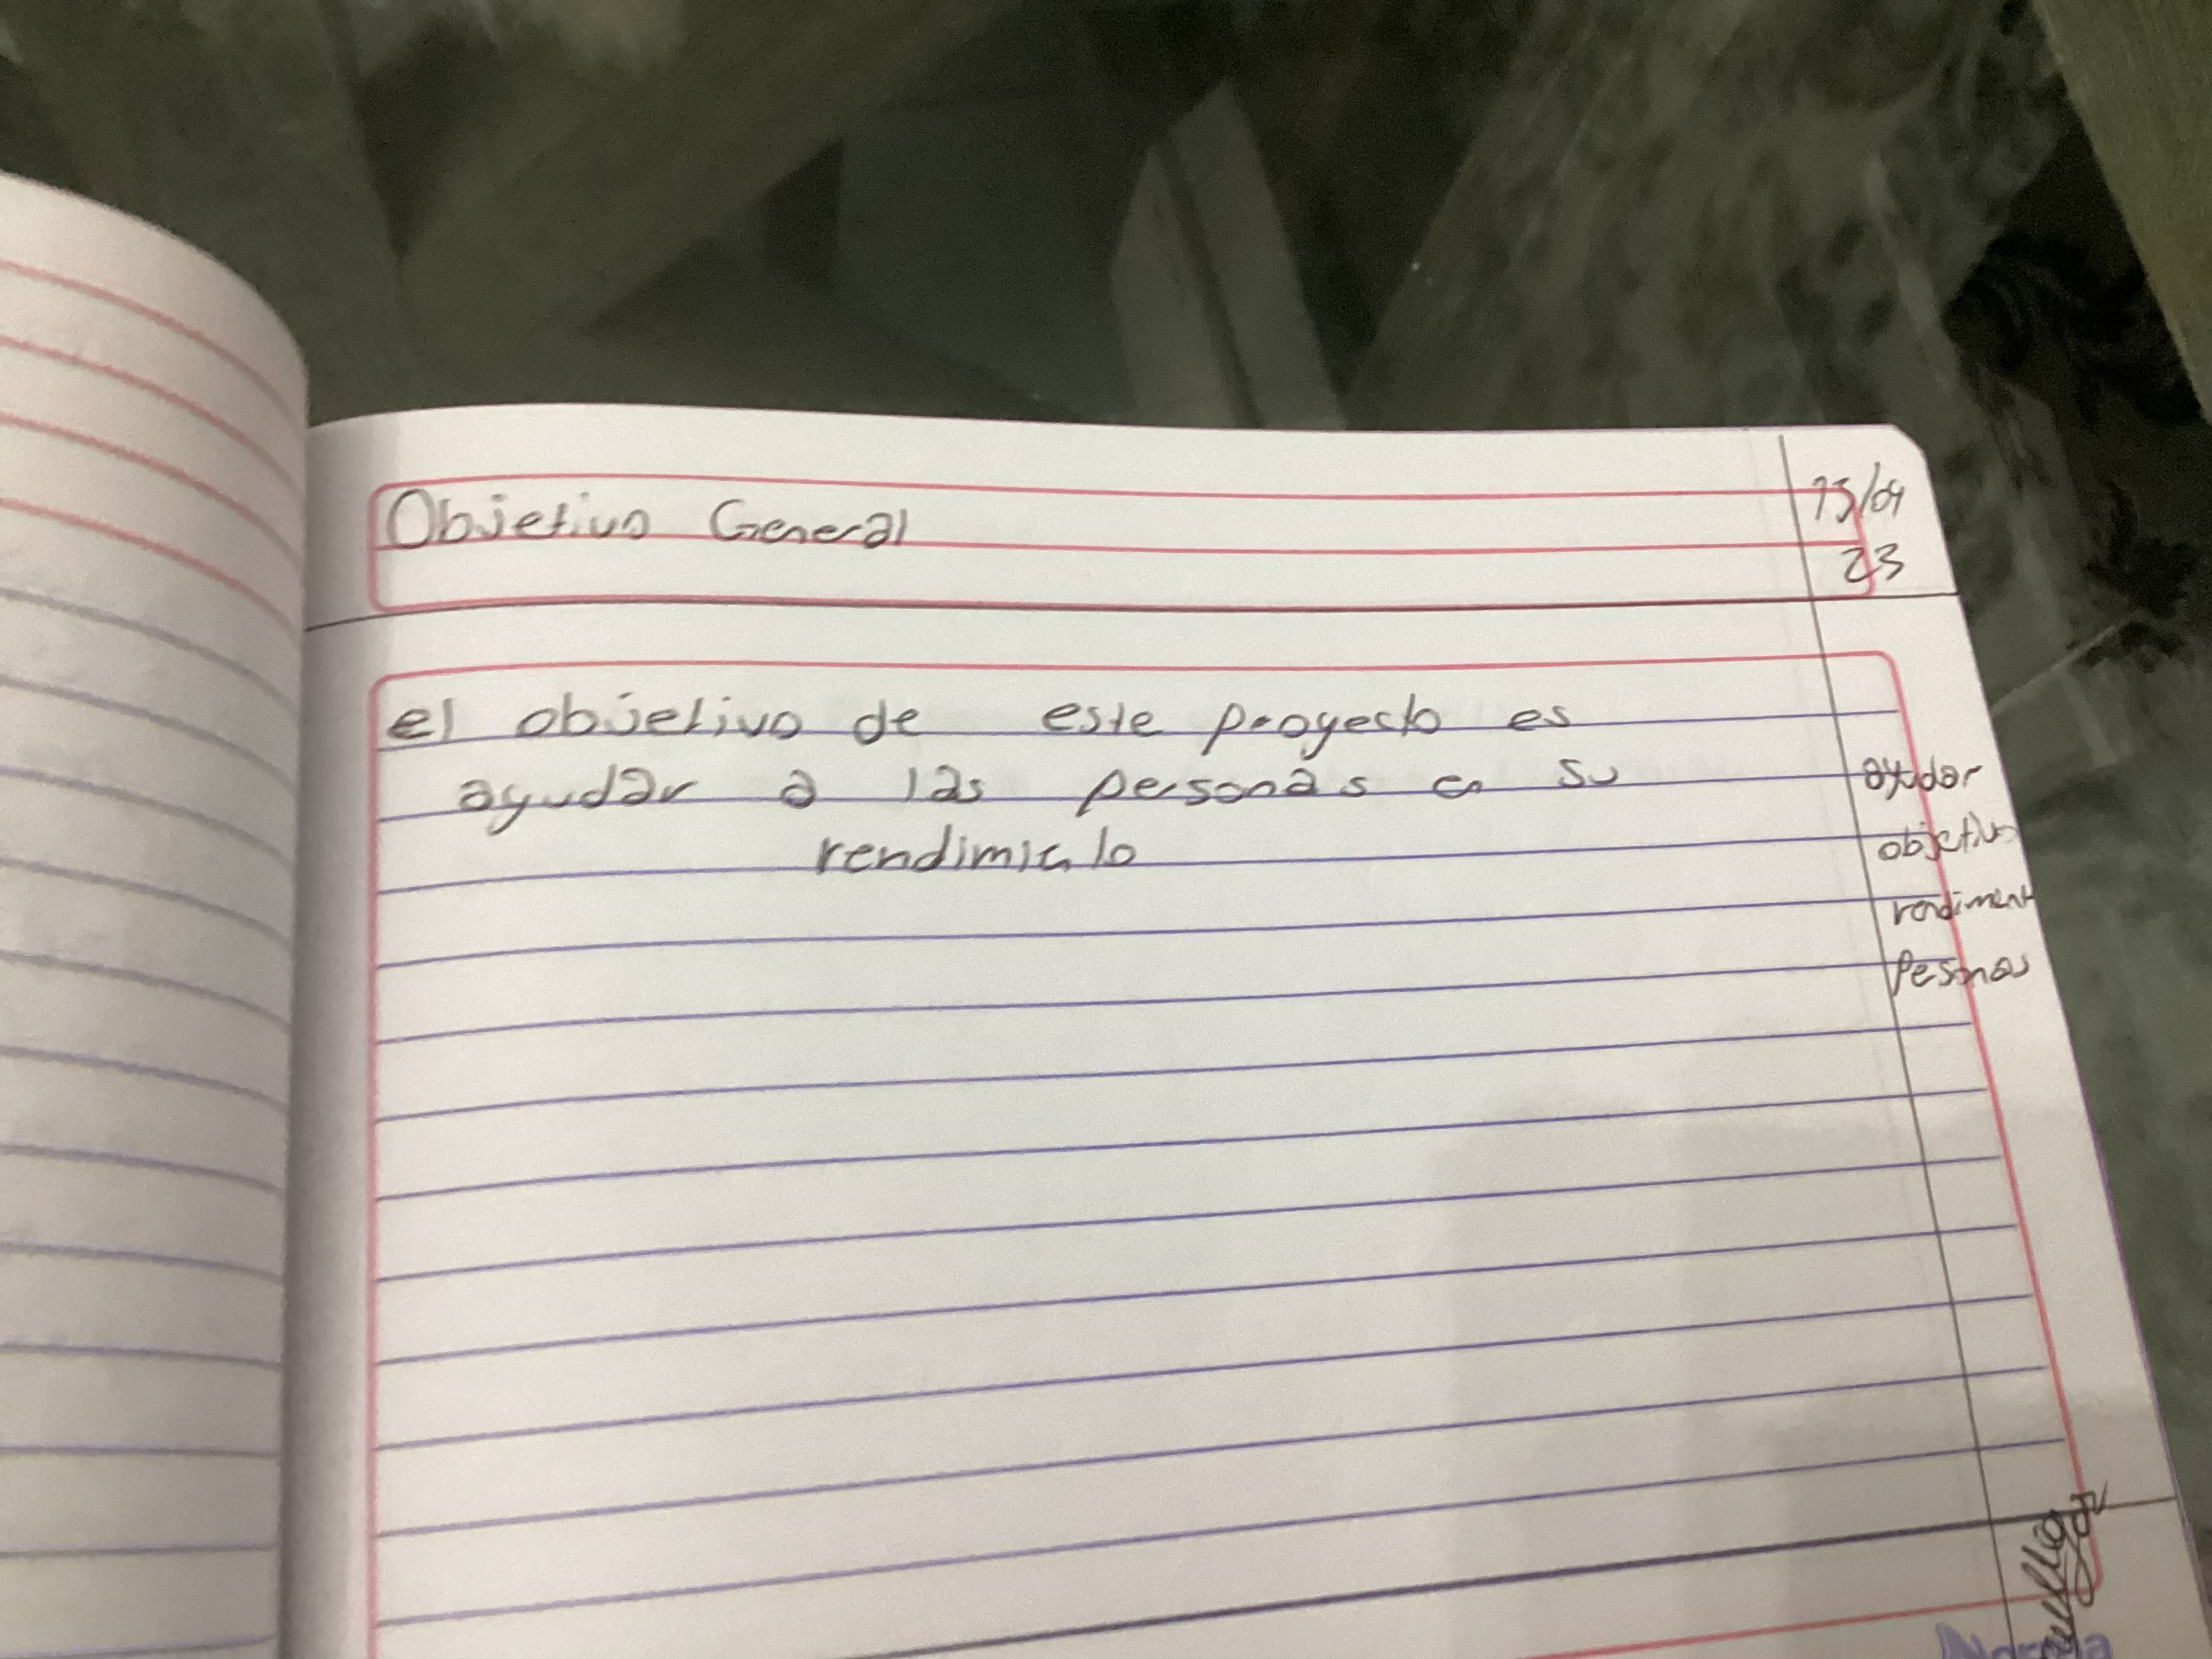 Objetivo General
13/09
23
el objetivo de este proyecto es
ayudar a las personas en su
rendimiento
ayudar
objetivo
rendiment
Pesonas
Norma